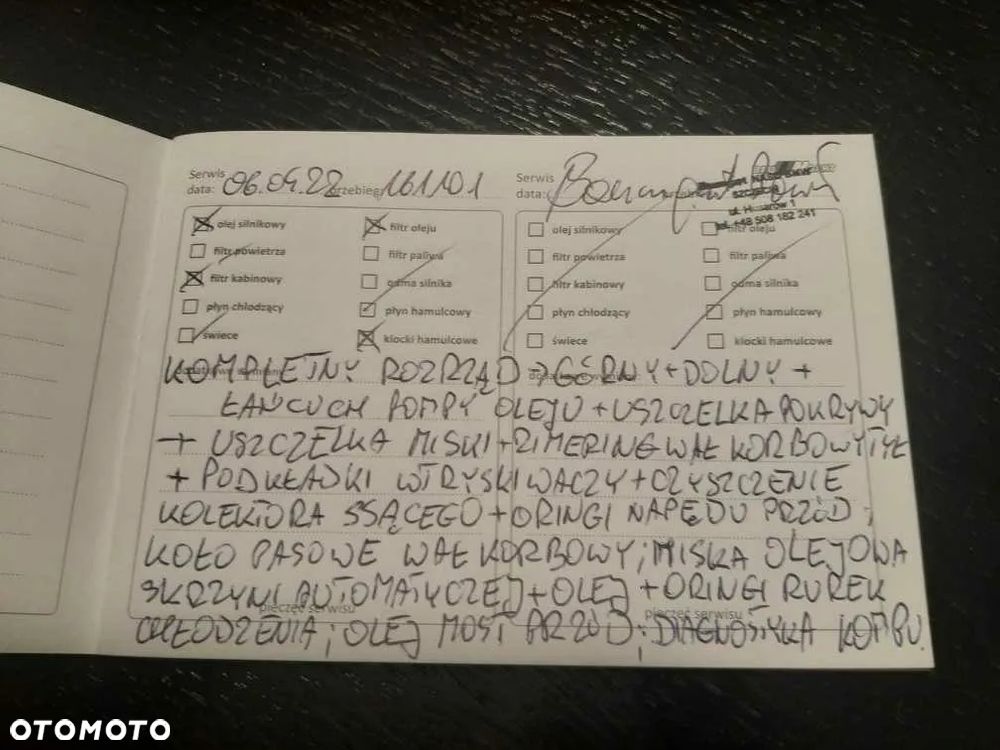 Serwis
data: 06.04.22 przebieg 161101
Serwis
data:
szczecin
ul. Husarów 1
tel. +48 508 182 241
olej silnikowy filtr oleju
filtr powietrza filtr paliwa
filtr kabinowy guma silnika
płyn chłodzący płyn hamulcowy
świece klocki hamulcowe
olej silnikowy filtr oleju
filtr powietrza filtr paliwa
filtr kabinowy guma silnika
płyn chłodzący płyn hamulcowy
świece klocki hamulcowe
KOMPLETNY ROZRZĄD → GÓRNY + DOLNY +
ŁAŃCUCH POMPY OLEJU + USZCZELKA POKRYWY
+ USZCZELKA MISKI + ZIMERING WAŁ KORBOWY TYŁ
+ PODKŁADKI WTRYSKIWACZY + CZYSZCZENIE
KOLEKTORA SSĄCEGO + ORINGI NAPĘDU PRZÓD;
KOŁO PASOWE WAŁ KORBOWY; MISKA OLEJOWA
SKRZYNI AUTOMATYCZEJ + OLEJ + ORINGI RUREK
pieczęć serwisu pieczęć serwisu
CHŁODZENIA; OLEJ MOST PRZÓD; DIAGNOSTYKA KOMPU.
OTOMOTO